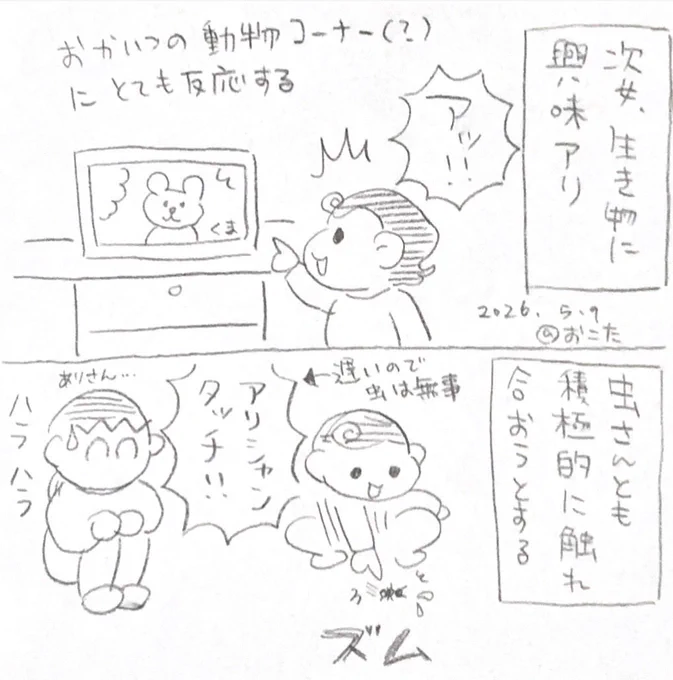 次女、生き物に
興味アリ
おかいつの動物コーナー(?)
にとても反応する
アッ!!
くま
2026.5.9
@おこた
虫さんとも
積極的に触れ
合おうとする
←遅いので
虫は無事
アリシャン
タッチ!!
ありさん…
ハラハラ
ズム